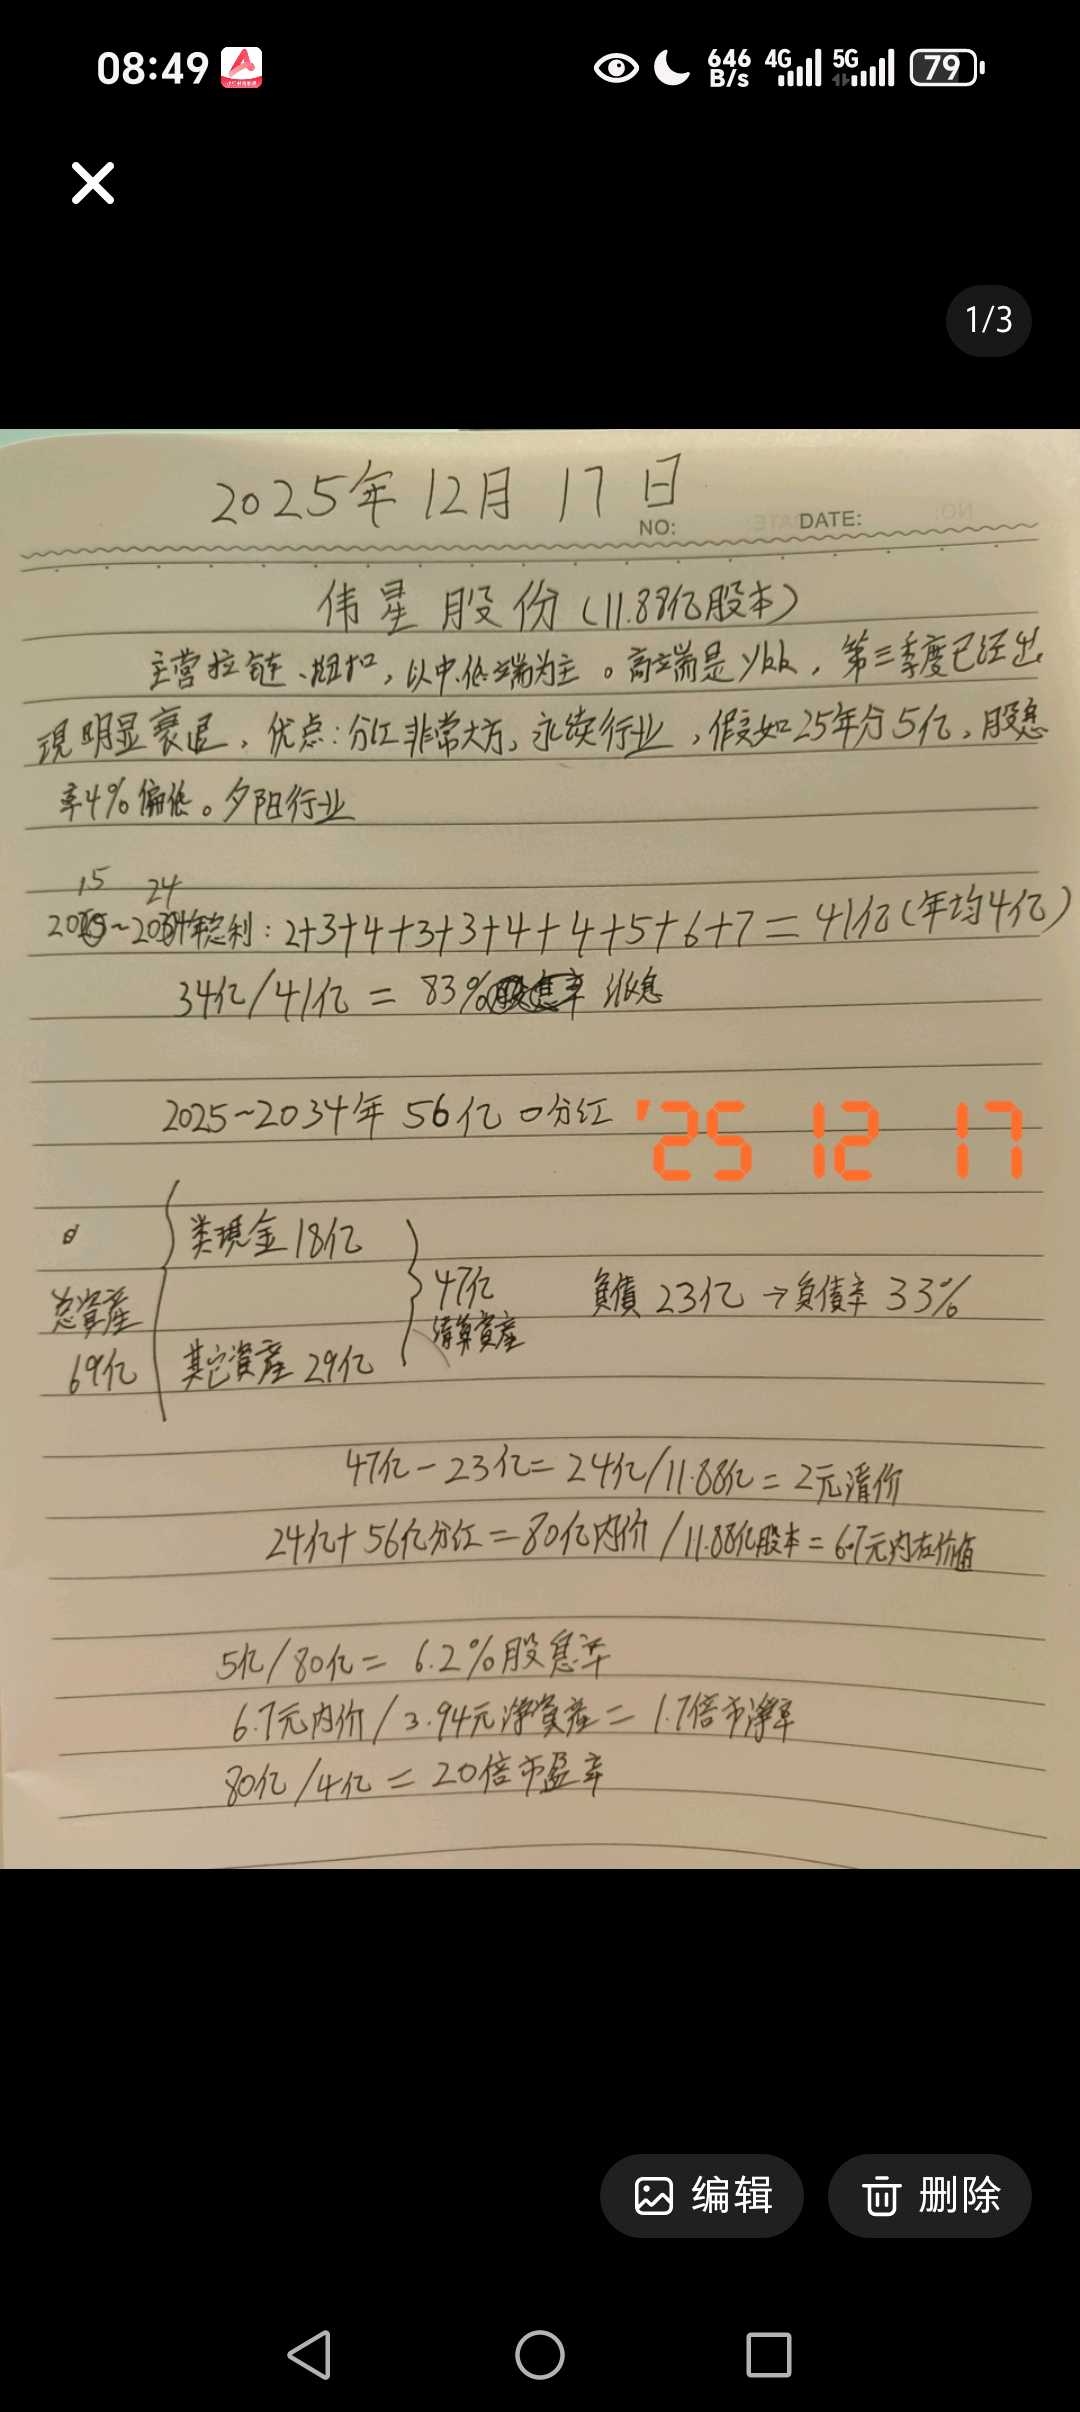 08:49
646 B/s 4G 5G 79
1/3
2025年12月17日
NO: DATE:
伟星股份(11.88亿股本)
主营拉链、纽扣,以中低端为主。高端是ykk,第三季度已经出
现明显衰退,优点:分红非常大方,永续行业,假如25年分5亿,股息
率4%偏低。夕阳行业
15 24
年总利:2+3+4+3+3+4+4+5+6+7=41亿(年均4亿)
34亿/41亿=83% 派息
2025~2034年 56亿 分红
'25 12 17
类現金18亿
总資産
69亿
47亿
清算資産
負債23亿→負債率33%
其它資産29亿
47亿-23亿=24亿/11.88亿=2元清价
24亿+56亿分红=80亿内价/11.88亿股本=6.7元内在价值
5亿/80亿=6.2%股息率
6.7元内价/3.94元净資産=1.7倍市净率
80亿/4亿=20倍市盈率
编辑
删除